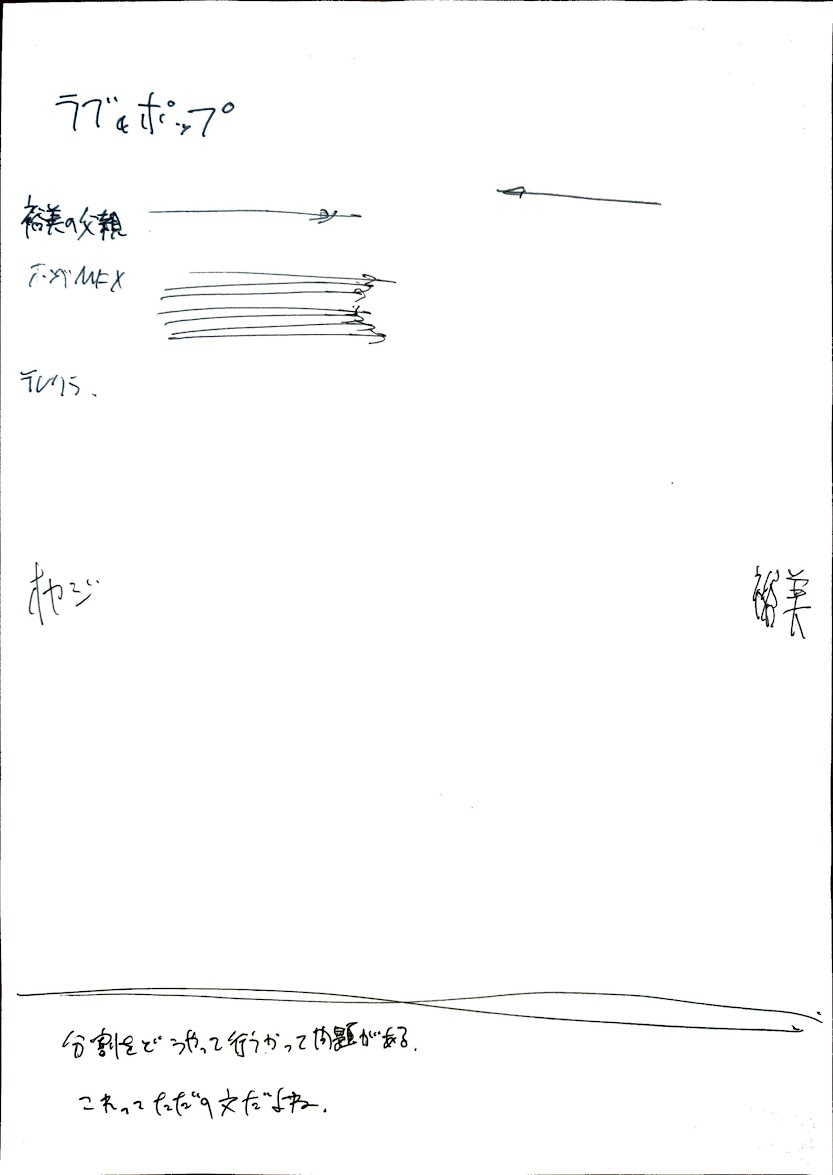 ラブ&ポップ
裕美の父親
テレクラ.
オヤジ
裕美
分割をどうやって行うかって問題がある.
これってただの文だよね.